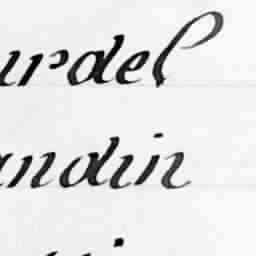 urdel
andin